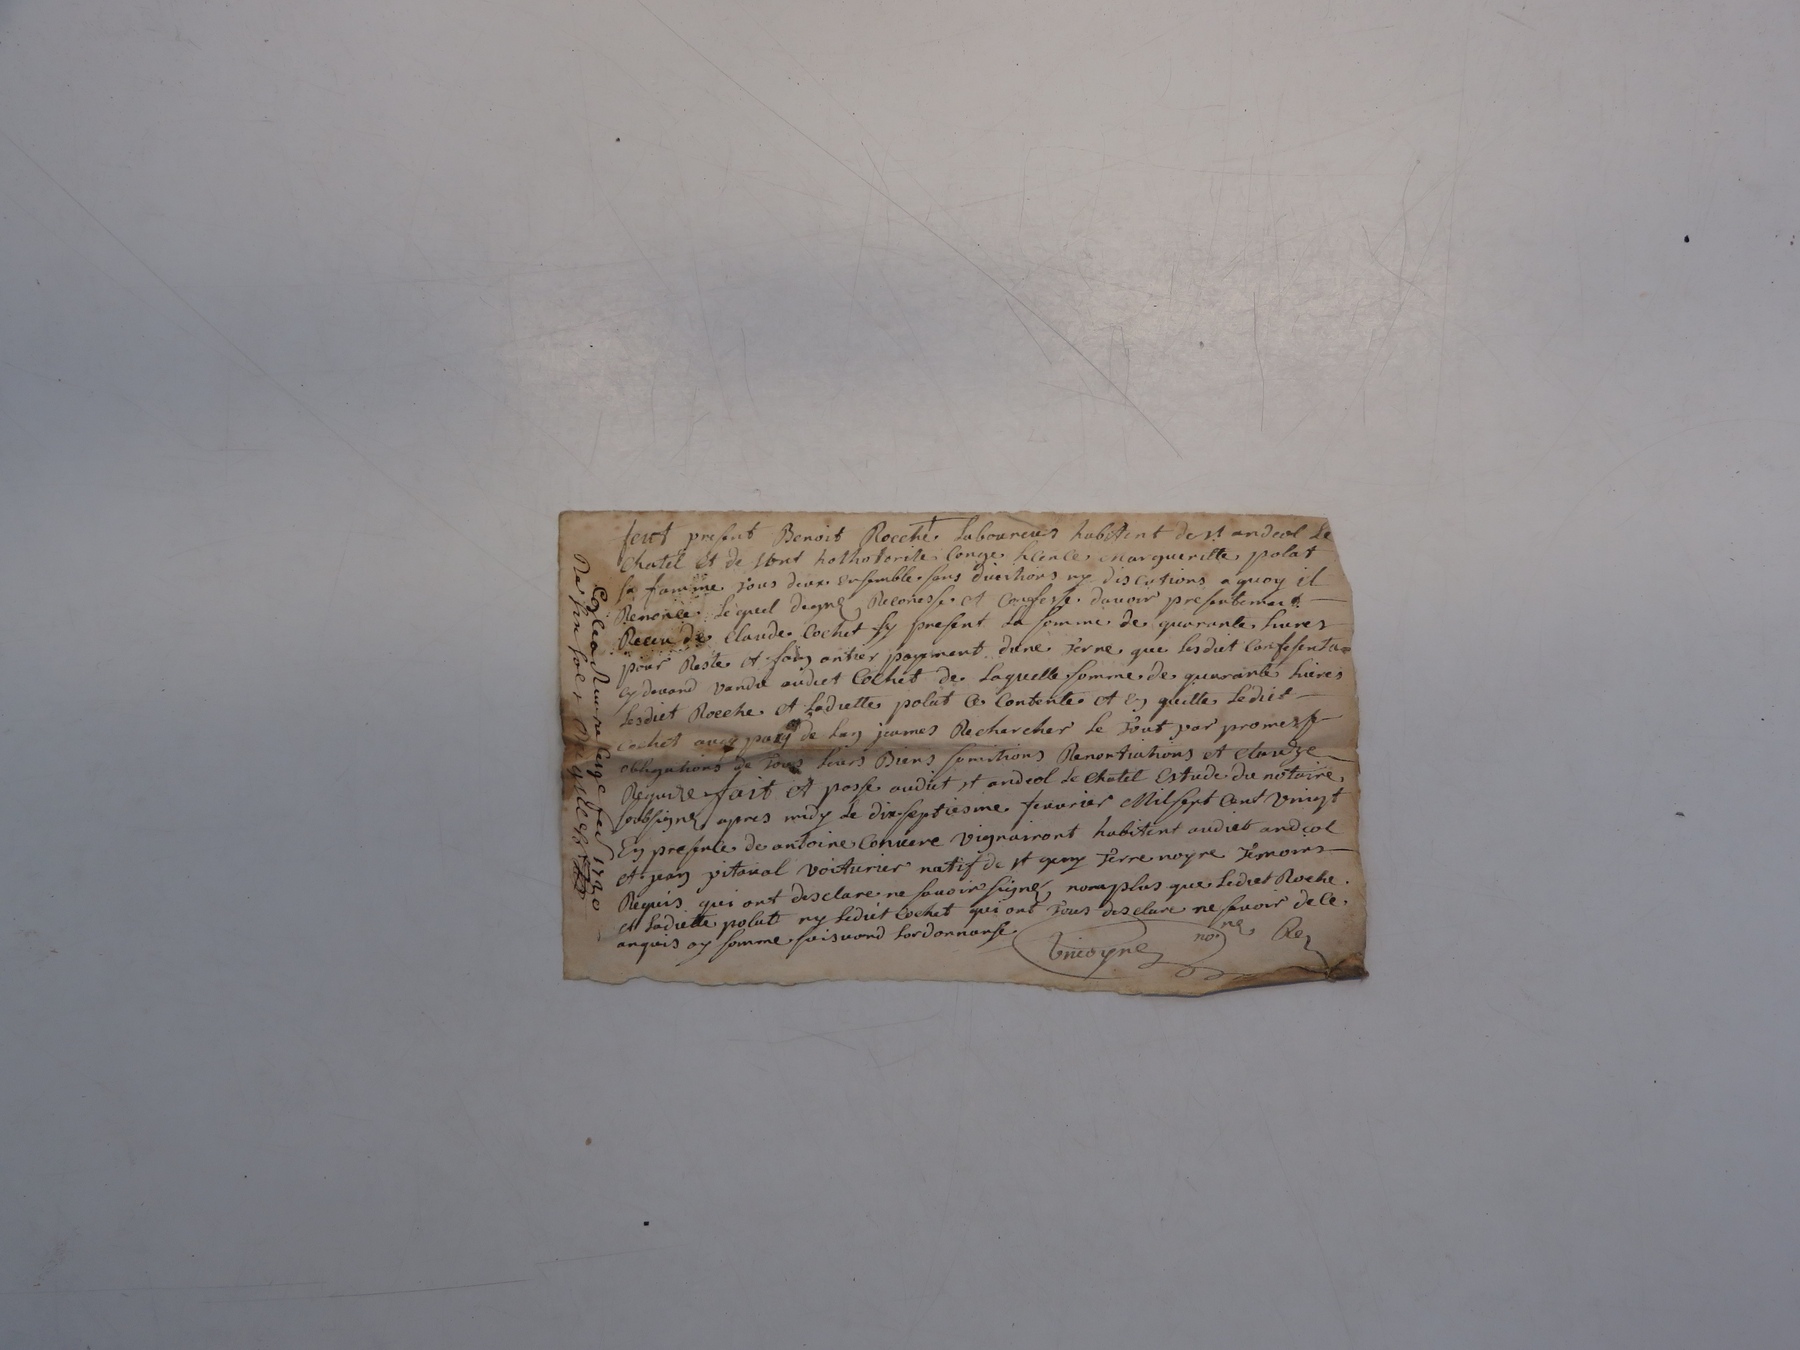 feut present Benoit Rocche Laboureur habitent de st andeol Le
Chatel Et de sont hothoorite Conge Margueritte polat
sa famme tous deux ensemble sans divithions ny discutions a quoy il
Renonce Lequel de gre Reconesse et Confesse davoir presentement
Receu de Claude Cochet sy present La somme de quarante Livres
pour Reste et antier payement dune terre que Lesdiet
cy devand vandu audiet Cochet de Laquelle somme de quarante Livres
Lesdiet Rocche et Ladiette polat Ce Contente et En quitte Lediet
Cochet de Lan james Rechercher Le tout par promesse
obligations de tous Leurs Biens somitions Renontiations et Clauze
Requize fait et passe audiet st andeol Le Chatel Estude du notaire
soubsigne apres midy Le dix septiesme feuvrier Mil sept Cent vingt
En presence de antoine habitent audiet andeol
et jean pitaval voiturier natif de st terre noyre temoins
Requis qui ont desclare ne savoir signe nomplus que Lediet Roche
et Ladiette polatt ny Lediet Cochet qui ont tous desclare ne savoir de Ce
anquis ay somme suivand Lordonnanse
no.re Re
1720